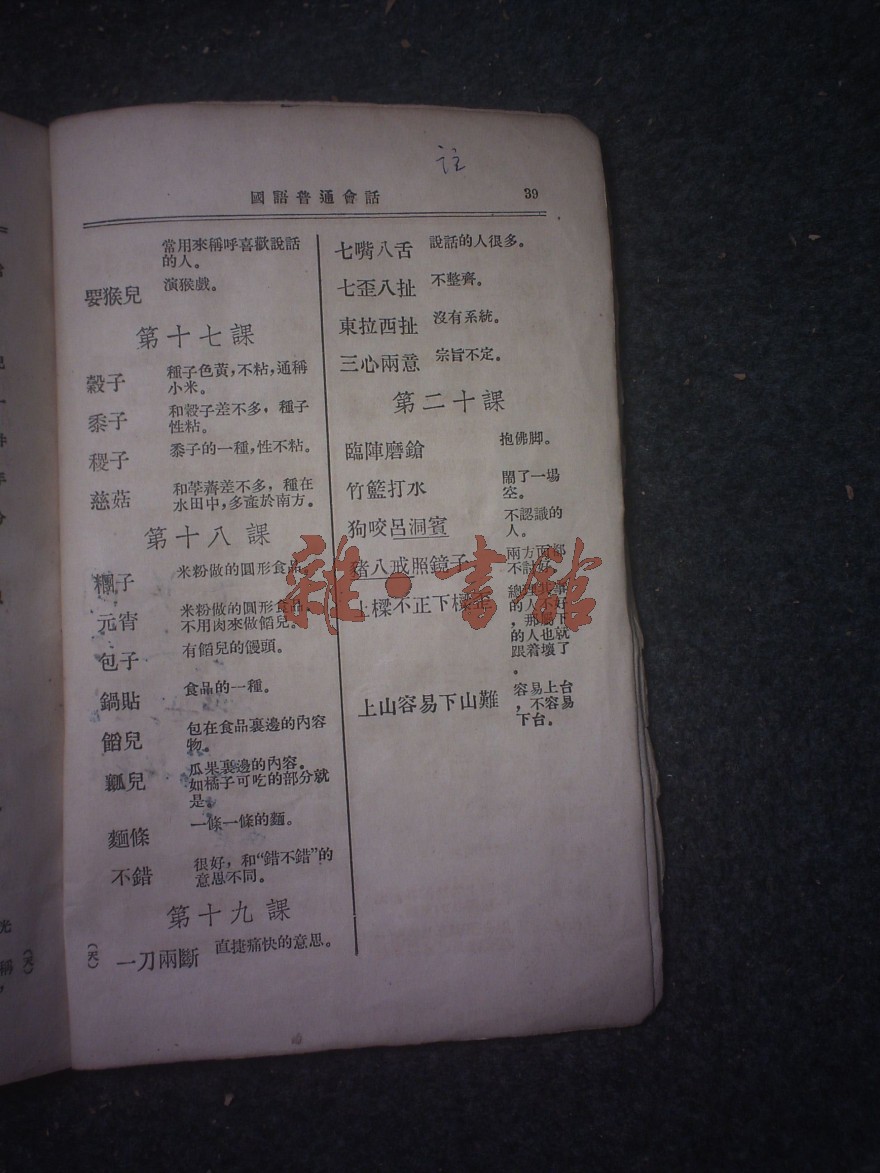 註
國語普通會話
39
當用來稱呼喜歡說話
的人。
耍猴兒
演猴戲。
第十七課
穀子
種子色黃，不粘，通稱
小米。
黍子
和穀子差不多，種子
性粘。
稷子
黍子的一種，性不粘。
慈菇
和荸薺差不多，種在
水田中，多產於南方。
第十八課
糰子
米粉做的圓形食品。
元宵
米粉做的圓形食品，
不用肉來做餡兒。
包子
有餡兒的饅頭。
鍋貼
食品的一種。
餡兒
包在食品裏邊的內容
物。
瓤兒
瓜果裏邊的內容。
如橘子可吃的部分就
是。
麵條
一條一條的麵。
不錯
很好，和“錯不錯”的
意思不同。
第十九課
一刀兩斷
直捷痛快的意思。
七嘴八舌
說話的人很多。
七歪八扯
不整齊。
東拉西扯
沒有系統。
三心兩意
宗旨不定。
第二十課
臨陣磨鎗
抱佛脚。
竹籃打水
鬧了一場
空。
狗咬呂洞賓
不認識的
人。
豬八戒照鏡子
兩方面都
不討好。
上樑不正下樑歪
的人不好
，那為下
的人也就
跟着壞了
。
上山容易下山難
容易上台
，不容易
下台。
雜·書館
光
稱
，